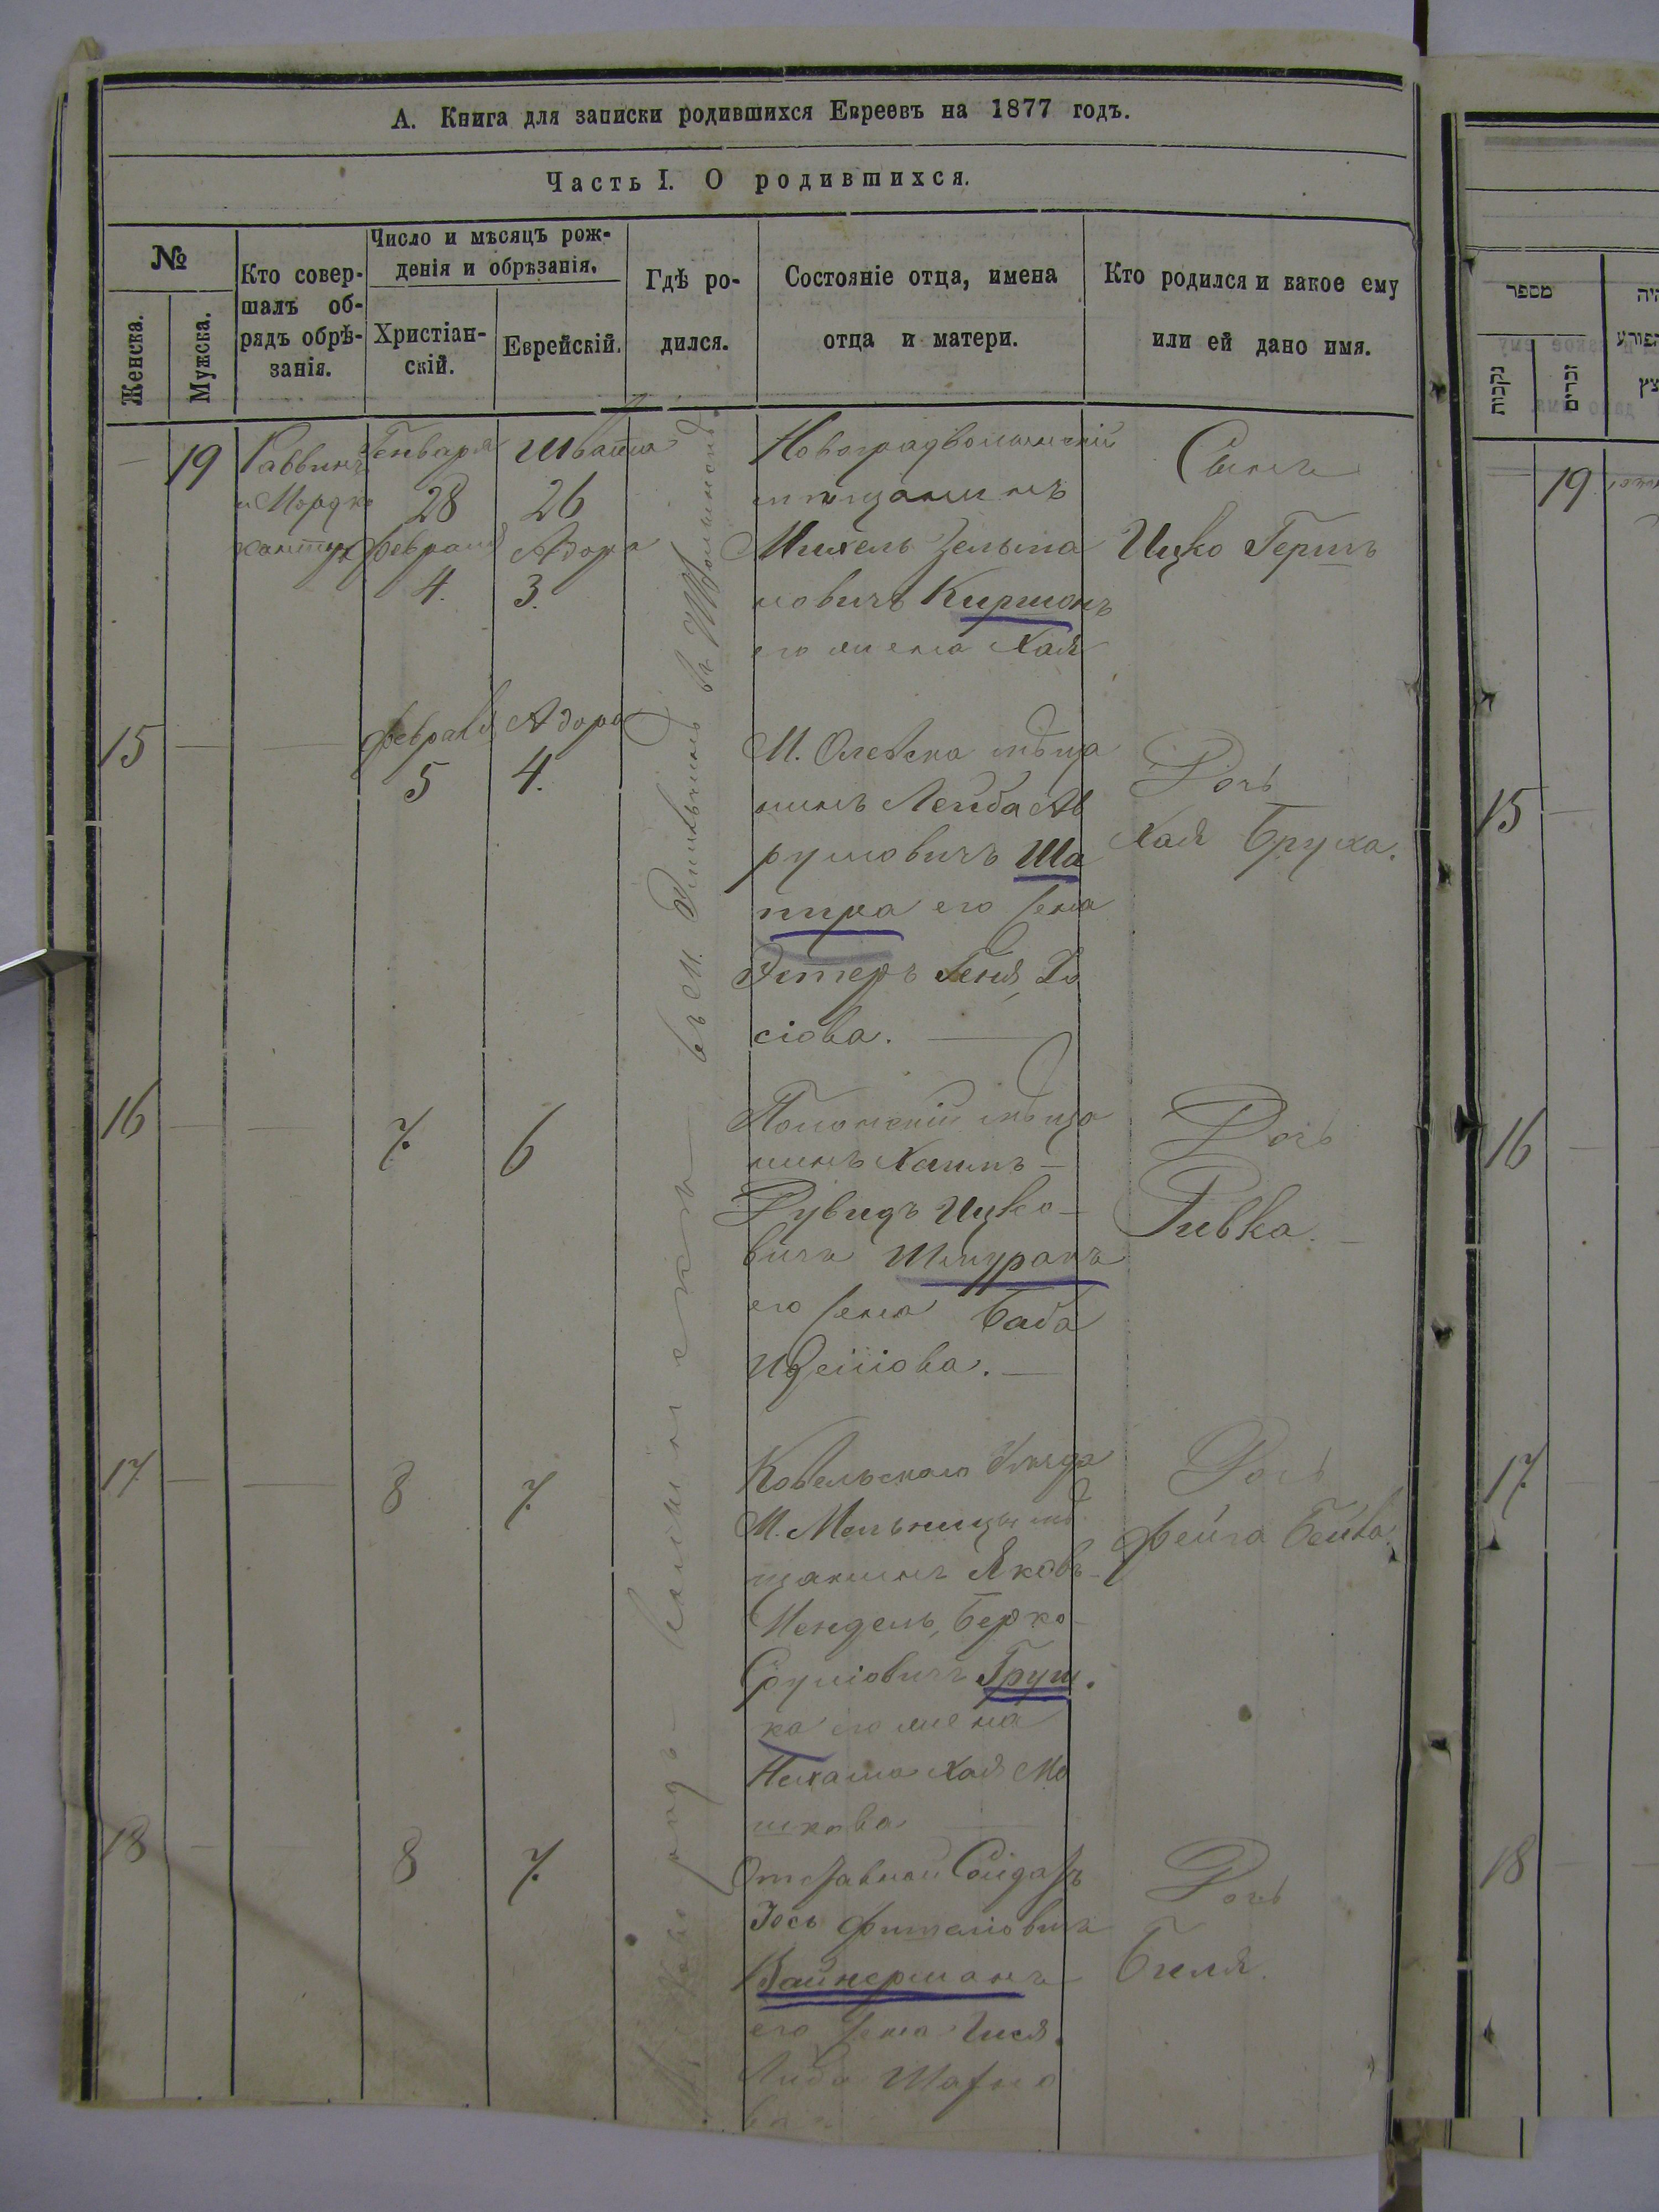 А. Книга для записки родившихся Евреевъ на 1877 годъ.
Часть I. О родившихся.
№
Женска.
Мужска.
Кто совер-
шалъ об-
рядъ обрѣ-
занія.
Число и мѣсяцъ рож-
денія и обрѣзанія.
Христіан-
скій.
Еврейскій.
Гдѣ ро-
дился.
Состояніе отца, имена
отца и матери.
Кто родился и какое ему
или ей дано имя.
—
19
Раввинъ
и Мордко
Генваря
28
Февраля
4.
Швата
26
Адара
3.
Новоградволынскій
мѣщанинъ
Михель Зельма
новичъ Киржонъ
его жена Хая
Сынъ
Ицко Гершъ
15
—
—
Февраля
5
Адара
4.
М. Олевска мѣща
нинъ Лейба Ав
румовичъ Ша
пира его жена
Эстеръ Геня Іо
сіова.
Дочь
Хая Бруха.
16
—
—
7.
6
Полонскій мѣща
нинъ Хаимъ—
Дувидъ Ицко—
вичъ
его жена Баба
Дочь
Ривка.—
17
—
—
8
7.
Ковельскаго Уѣзда
М. Мельницы мѣ
щанинъ Яковъ—
Мендель, Берко—
Сруліовичъ Груш.
ка его жена
Нехама Хая Мо
шкова
Дочь
Фейга Бейла.
18
—
—
8
7.
Отставной Солдатъ
Іось
Вайнерманъ
его жена Гися.
Дочь
Биля.
въ М.
מספר
נקבות
זכרים
19
15
16
17.
18